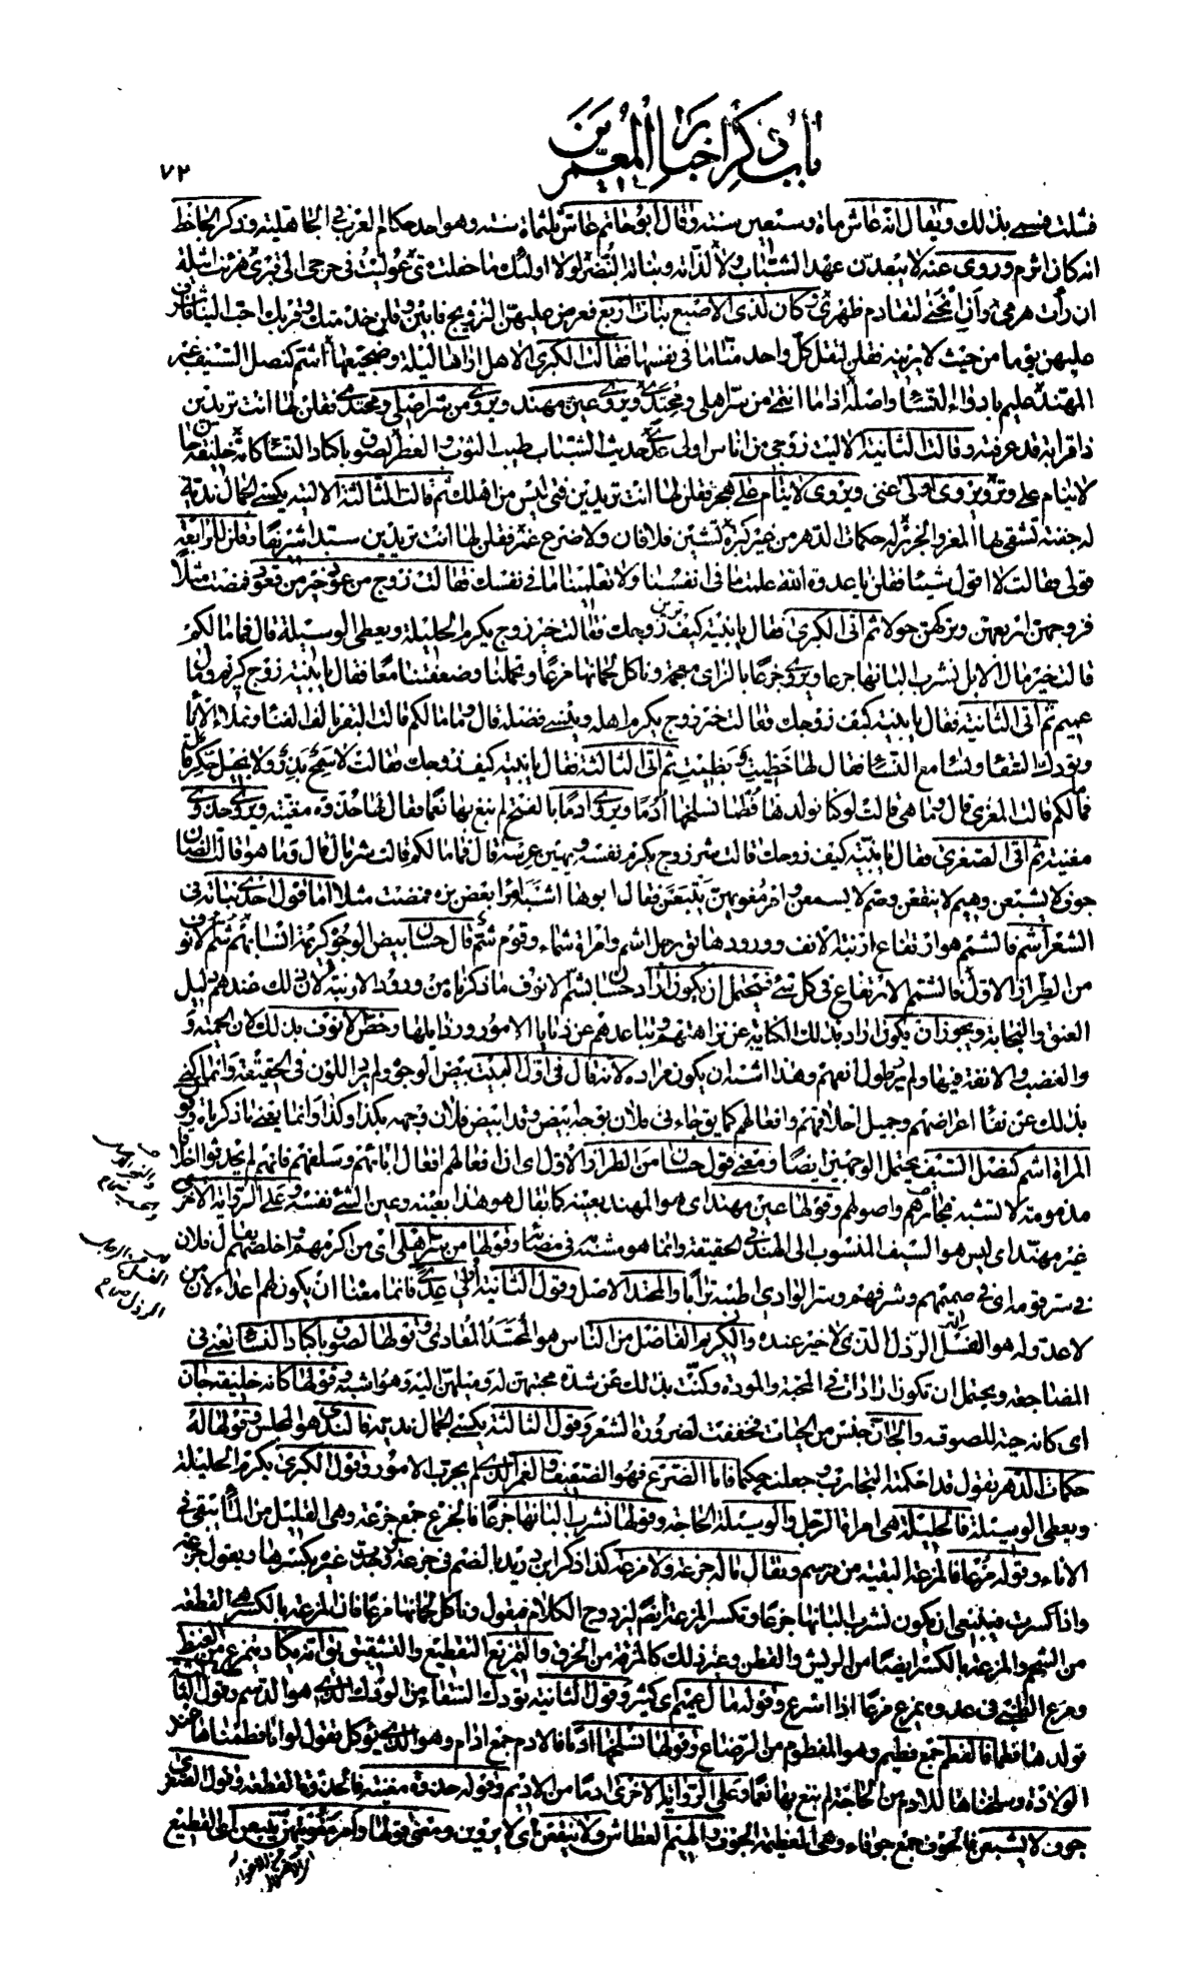 باب ذكر اخبار المعمرين
٧٣
فشلت فسمي بذلك ويقال انه عاش مائة وسبعين سنة وقال ابو حاتم عاش ثلثمائة سنة وهو احد حكام العرب في الجاهلية وذكر الجاحظ
انه كان اثرم وروى عنه لا يبعدن عهد الشباب ولا لذاته ونباته النضر لولا اولئك ما حفلت متى عوليت في حرجي الى قبري هزئت اثيلة
ان رأت هرمي وأن انحنى لتقادم ظهري وكان لذي الاصبع بنات اربع فعرض عليهن التزويج فابين وقلن خدمتك وقربك احب الينا فاشرف
عليهن يوما من حيث لا يرينه فقلن لتقل كل واحدة منا ما في نفسها فقالت الكبرى الا هل اراها ليلة وضجيعها أشم كنصل السيف غير
المهند عليم بادواء النساء واصله اذا ما انتمى من سر اهلي ومحتدي ويروى عين مهند ويروى من سر اصلي ومحتدي فقلن لها انت تريدين
ذا قرابة قد عرفته وقالت الثانية الا ليت زوجي من اناس اولى عدى حديث الشباب طيب الثوب والعطر لصوق باكباد النساء كانه خليفة جان
لا ينام على وتر ويروى اولى غنى ويروى لا ينام على هجر فقلن لها انت تريدين فتى ليس من اهلك ثم قالت الثالثة الا ليته يكسى الجمال نديه
له جفنة تشقى بها المعز والجزر له حكمات الدهر من غير كبرة تشين فلا فان ولا ضرع غمر فقلن لها انت تريدين سيدا شريفا وقلن للرابعة
قولي فقالت لا اقول شيئا فقلن يا عدوة الله علمت ما في انفسنا ولا تعلمينا ما في نفسك فقالت زوج من عود خير من قعود فمضت مثلا
فزوجهن اربعهن وتركهن حولا ثم اتى الكبرى فقال يا بنية كيف ترين زوجك فقالت خير زوج يكرم الحليلة ويعطي الوسيلة قال فما مالكم
قالت خير مال الابل نشرب البانها جرعا ويروى جزعا بالزاى معجمة وناكل لحمانها مزعا وتحملنا وضعفتنا معا فقال يا بنية زوج كريم ومال
عميم ثم اتى الثانية فقال يا بنية كيف زوجك فقالت خير زوج يكرم اهله وينسى فضله قال وما مالكم قالت البقر تالف الفناء وتملاء الاناء
وتودك السقاء ونساء مع النساء فقال لها حظيت وبظيت ثم اتى الثالثة فقال يا بنية كيف زوجك فقالت لا سمح بذر ولا بخيل حكر قال
فمالكم قالت المعزى قال وما هي قالت لو كنا نولدها فطما نسلخها أدما ويروى أدما بالفتح لم نبغ بها نعما فقال لها حذوة مغنية ويروى حذوى
مغنية ثم اتى الصغرى فقال يا بنية كيف زوجك قالت شر زوج يكرم نفسه ويهين عرسه قال فما مالكم قالت شر مال قال وما هو قالت الضان
جوف لا يشبعن وهيم لا ينقعن وصم لا يسمعن وامر مغويتهن يتبعن فقال ابوها اشبه امرا بعض بزه فمضت مثلا اما قول احدى بناته في
الشعر اشم فالشمم هو ارتفاع ارنبة الانف وورودها يق رجل اشم وامراة شماء وقوم شم قال حسان بيض الوجوه كريمة انسابهم شم الانوف
من الطراز الاول فالشمم الارتفاع في كل شئ فيحتمل ان يكون اراد حسان بشم الانوف ما ذكرناه من ورود الارنبة لان ذلك عندهم دليل
العتق والنجابة ويجوز ان يكون اراد بذلك الكناية عن نزاهتهم وتباعدهم عن دنايا الامور ورذايلها وخص الانوف بذلك لان الحمية و
والغضب والانفة فيها ولم يرد طول انفهم وهذا اشبه ان يكون مراده لانه قال في اول البيت بيض الوجوه ولم يرد اللون في الحقيقة وانما كنى
بذلك عن نقاء اعراضهم وجميل اخلاقهم وافعالهم كما يق جاءني فلان بوجه ابيض وقد ابيض فلان وجهه بكذا وكذا وانما يعنى ما ذكرناه وقول
المراة اشم كنصل السيف يحتمل الوجهين ايضا ومعنى قول حسان من الطراز الاول اى ان افعالهم افعال ابائهم وسلفهم فانهم لم يحدثوا اخلاقا
مذمومة لا تشبه نجارهم واصولهم وقولها عين مهند اى هو المهند بعينه كما يقال هو هذا بعينه وعين الشئ نفسه وعلى الرواية الاخرى
غير مهند اى ليس هو السيف المنسوب الى الهند في الحقيقة وانما هو مشبه به في مضائه وقولها من سر اهلي اى من اكرمهم واخلصهم يقال فلان
في سر قومه اى في صميمهم وشرفهم وسر الوادي اطيبه ترابا والمحتد الاصل وقول الثانية اولى عدى فانما معناه ان يكون لهم اعداء لان من
لا عدو له هو الفسل الرذل الذي لا خير عنده والكريم الفاضل من الناس هو المحسد المعادى وقولها لصوق باكباد النساء يعني في
المضاجعة ويحتمل ان تكون ارادت في المحبة والمودة وكنت بذلك عن شدة محبتهن له وميلهن اليه وهو اشبه وقولها كانه خليفة جان
اى كانه حية للصوقه والجان جنس من الحيات فخففت لضرورة الشعر وقول الثالثة يكسى الجمال نديه فالندى هو المجلس وقولها له
حكمات الدهر تقول قد احكمته التجارب وجعلته حكيما فاما الضرع فهو الضعيف والغمر الذي لم يجرب الامور وقول الكبرى يكرم الحليلة
ويعطي الوسيلة فالحليلة هى امراة الرجل والوسيلة الحاجة وقولها نشرب البانها جرعا فالجرع جمع جرعة وهى القليل من الماء يبقى في
الاناء وقوله مزعا فالمزعة البقية من دسم ويقال ماله جزعة ولا مزعة كذا ذكر ابن دريد بالضم في جزعة ووجدت غيره يكسرها ويقول جزعة
واذا كسرت فينبغي ان يكون نشرب البانها جزعا وتكسر المزعة ايضا ليزدوج الكلام فيقول وناكل لحمانها مزعا فان المزعة بالكسر هى القطعة
من الشحم والمزعة بالكسر ايضا من الريش والقطن وغير ذلك كالمزقة من الخرق والتمزيع التقطيع والتشقيق يق انه يكاد يتمزع من الغيظ
ومزع الظبي في عدوه يمزع مزعا اذا اسرع وقوله مال عميم اى كثير وقول الثانية تودك السقاء من الودك الذي هو الدسم وقول الثالثة
نولدها فطما فالفطم جمع فطيم وهو المفطوم من الرضاع وقولها نسلخها ادما فالادم جمع ادام وهو الذي يؤكل تقول لو انا فطمناها عند
الولادة وسلخناها للادم من الحاجة لم نبغ بها نعما وعلى الرواية الاخرى ادما من الاديم وقوله حذوة مغنية فالحذوة القطعة وقول الصغرى
جوف لا يشبعن فالجوف جمع جوفاء وهى العظيمة الجوف والهيم العطاش ولا ينقعن اى لا يروين ومعنى قولها وامر مغويتهن يتبعن اى القطيع